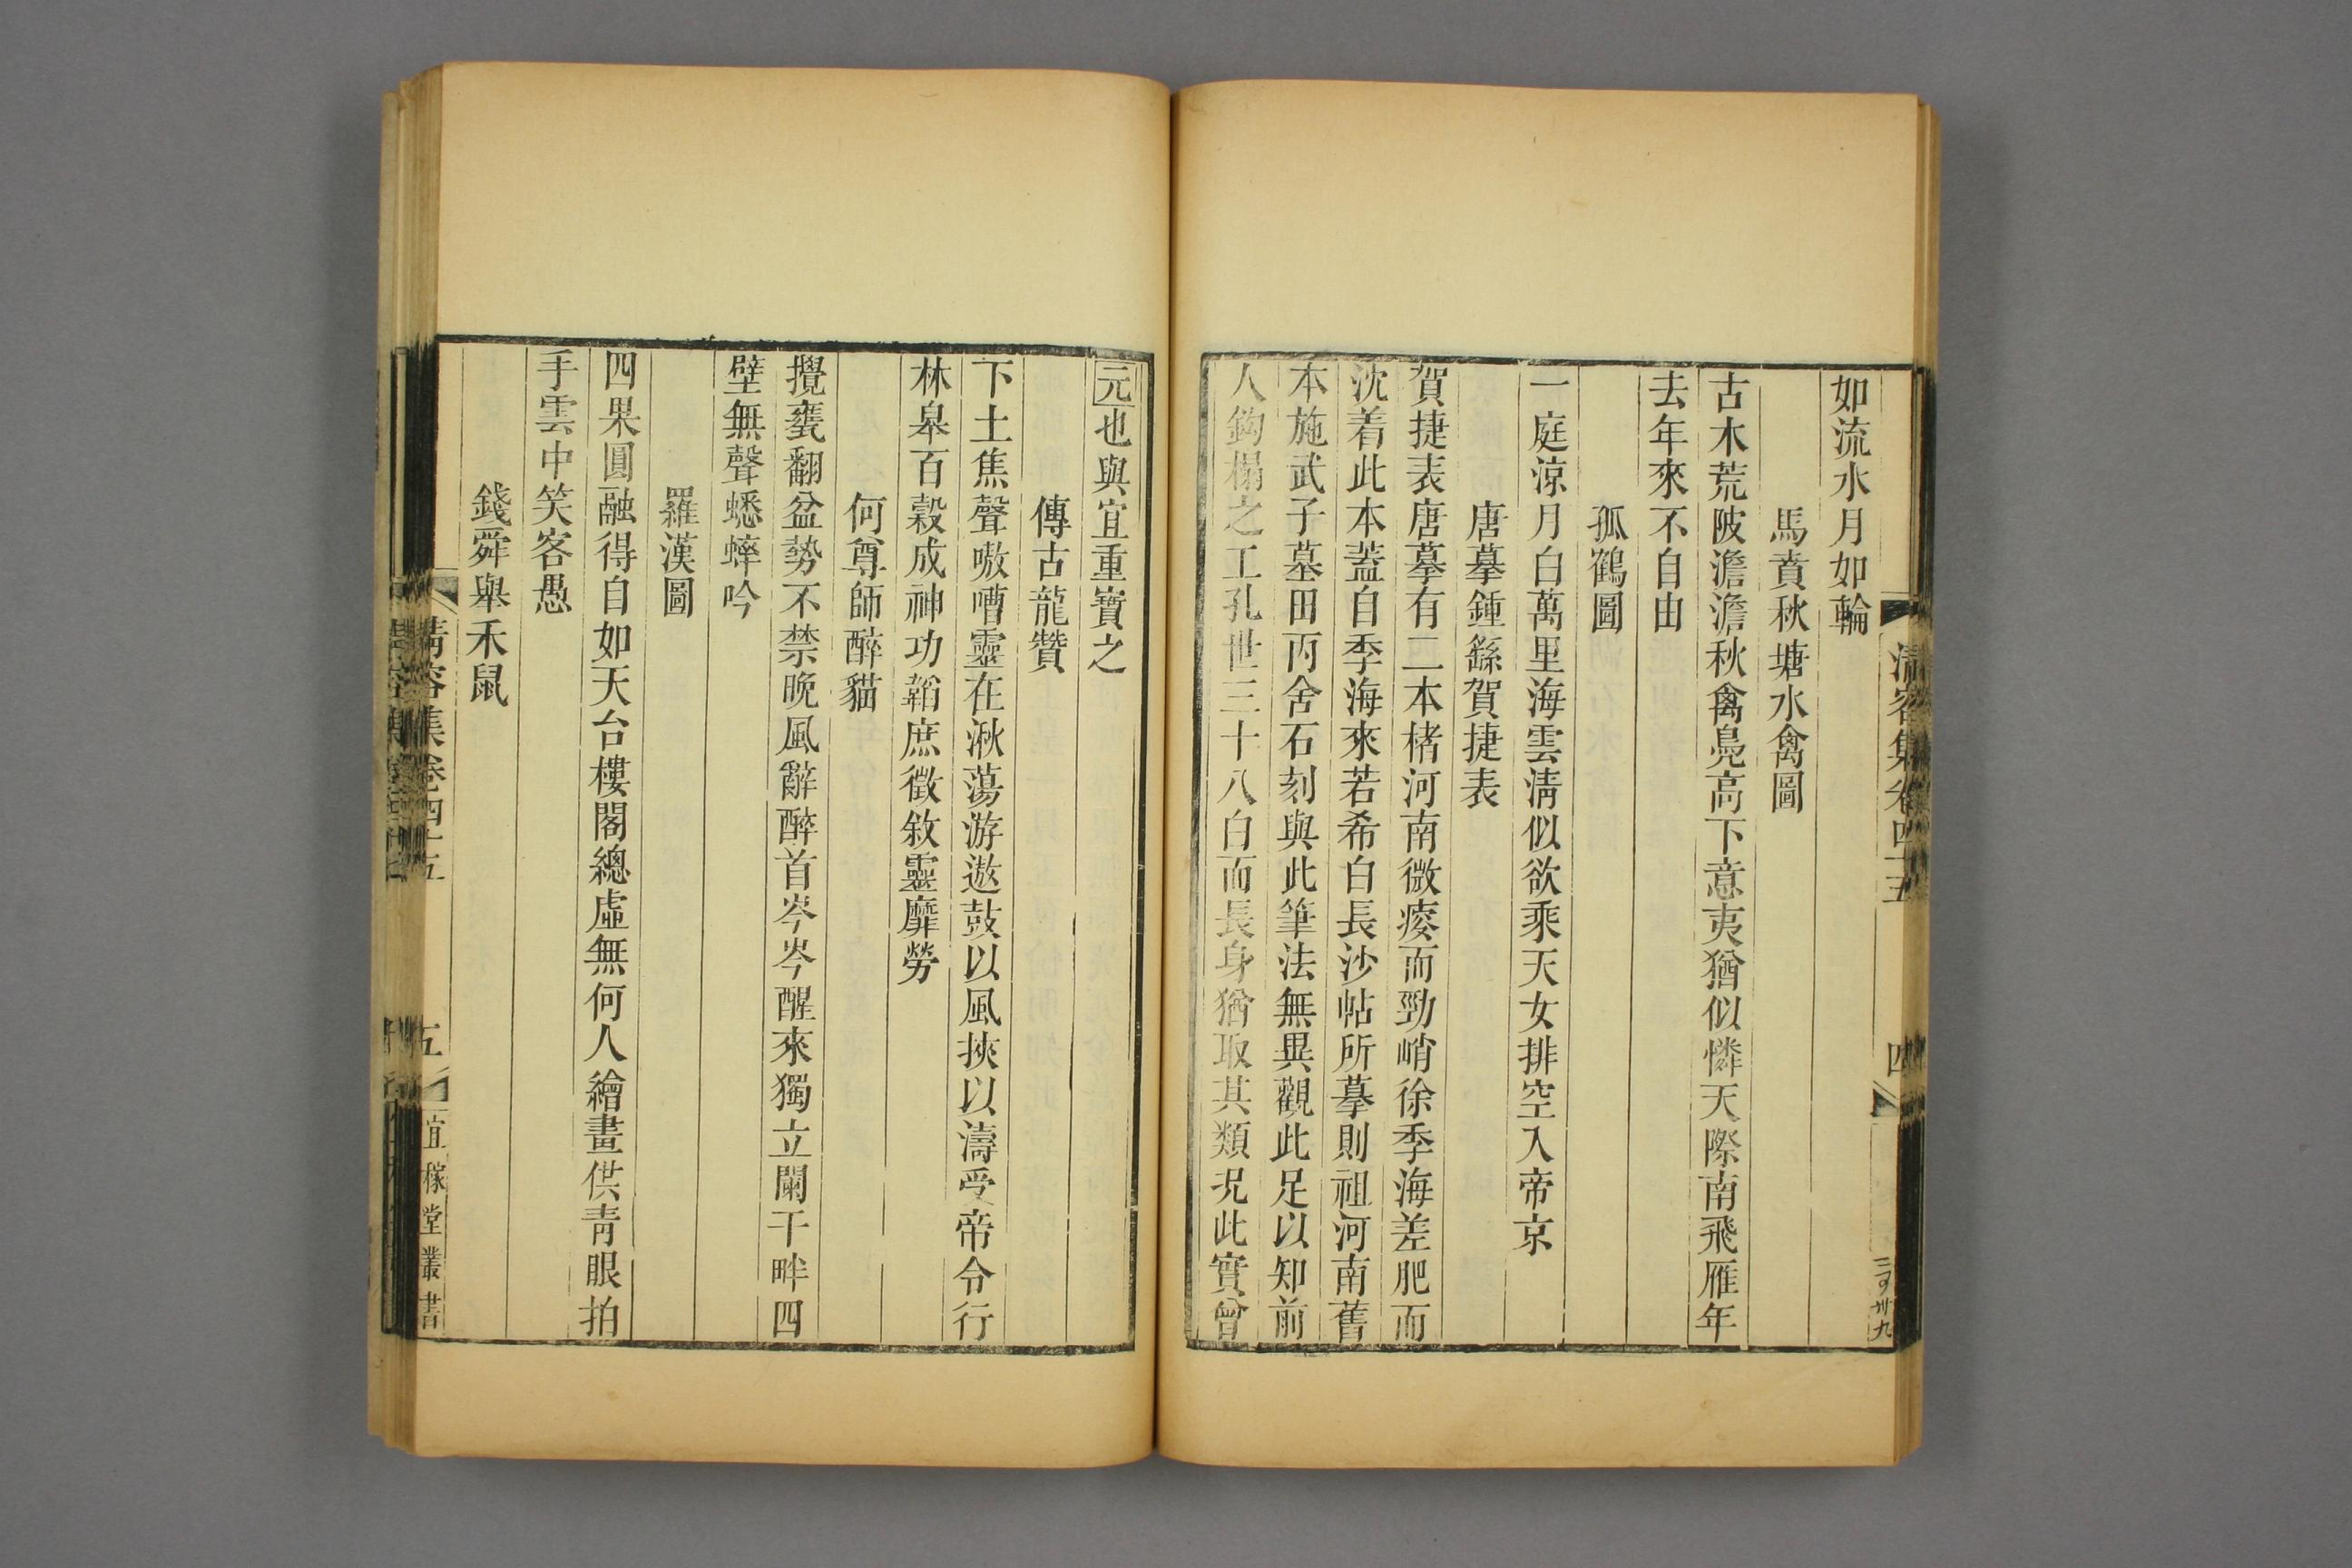 清容集卷四十五
四
三可卅九
如流水月如輪
馬賁秋塘水禽圖
古木荒陂澹澹秋禽鳧高下意夷猶似憐天際南飛雁年
去年來不自由
孤鶴圖
一庭涼月白萬里海雲淸似欲乘天女排空入帝京
唐摹鍾繇賀捷表
賀捷表唐摹有二本楮河南微痠而勁峭徐季海差肥而
沈着此本蓋自季海來若希白長沙帖所摹則祖河南舊
本施武子墓田丙舍石刻與此筆法無異觀此足以知前
人鉤榻之工孔世三十八白而長身猶取其類況此實曾
元也與宜重寶之
傳古龍贊
下土焦聲嗷嘈靈在湫蕩游遨鼓以風挾以濤受帝令行
林皋百穀成神功韜庶徵敘靈靡勞
何尊師醉貓
攪甕翻盆勢不禁晚風辭醉首岑岑醒來獨立闌干畔四
壁無聲蟋蟀吟
羅漢圖
四果圓融得自如天台樓閣總虛無何人繪畫供靑眼拍
手雲中笑客愚
錢舜舉禾鼠
清容集卷四十五
五
宜稼堂叢書